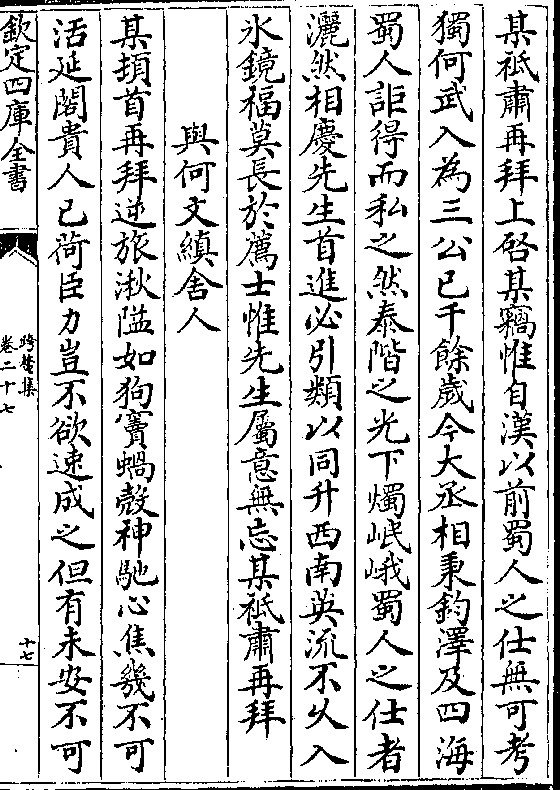 某祇肅再拜上啓某竊惟自漢以前蜀人之仕無可考
獨何武入為三公已千餘歲今大丞相秉鈞澤及四海
蜀人詎得而私之然泰階之光下燭岷峨蜀人之仕者
灑然相慶先生首進必引類以同升西南英流不乆入
氷鏡福莫長於薦士惟先生屬意無忘某祗肅再拜
與何文縝舍人
某頓首再拜逆旅湫隘如狗竇蝸殻神馳心焦幾不可
活延閣貴人已荷臣力豈不欲速成之但有未安不可
欽定四庫全書
跨鼇集
卷二十七
十七